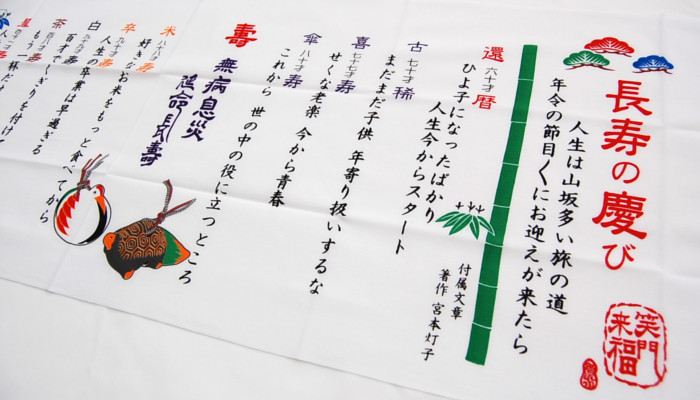 長寿の慶び
笑門来福
人生は山坂多い旅の道
年令の節目〱にお迎えが来たら
付属文章
著作 宮本灯子
還六十才暦
ひよ子になったばかり
人生今からスタート
古七十才稀
まだまだ子供 年寄り扱いするな
喜七十七才寿
せくな老楽 今から青春
傘八十才寿
これから 世の中の役に立つところ
壽
無病息災
延命長壽
米八十八才寿
好きなお米をもっと食べてから
卒九十才寿
人生の卒業は早過ぎる
白九十九才寿
百才でくぎりを付け
茶百八才寿
もう一杯だけ
皇百十一才